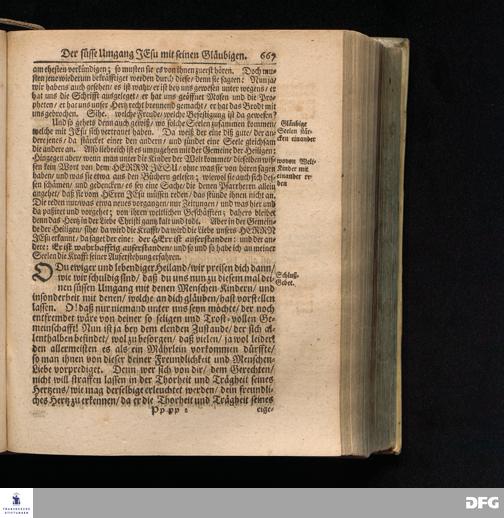 Der süsse Umgang JEsu mit seinen Gläubigen. 667
am ehesten verkündigen; so musten sie es von ihnen zuerst hören. Doch mu-
sten jene wiederum bekräfftiget werden durch diese/ denn sie sagten: Nun ja/
wir habens auch gesehen/ es ist wahr/ er ist bey uns gewesen unter wegens/ er
hat uns die Schrifft ausgeleget/ er hat uns geöffnet Mosen und die Pro-
pheten/ er hat uns unser Hertz recht brennend gemacht/ er hat das Brodt mit
uns gebrochen. Sihe, welche Freude/ welche Befestigung ist da gewesen?
Und so gehets denn auch gewiß/ wo solche Seelen zusammen kommen/
welche mit JEsu sich vertrauet haben. Da weiß der eine diß gute/ der an-
dere jenes/ da stärcket einer den andern/ und zündet eine Seele gleichsam
die andere an. Also lieblich ist es umzugehen mit der Gemeine der Heiligen:
Hingegen aber/ wenn man unter die Kinder der Welt kommet/ dieselben wis-
sen kein Wort von dem HERRN JESU/ ohne was sie von hören sagen
haben/ und was sie etwa aus den Büchern gelesen; wiewol sie auch sich des-
sen schämen/ und gedencken/ es sey eine Sache/ die denen Pfarrherrn allein
angehet/ daß sie vom HErrn JEsu müssen reden/ das stünde ihnen nicht an.
Die reden nur/ was etwa neues vorgangen/ nur Zeitungen/ und was hier und
da paßiret und vorgehet; von ihren weltlichen Geschäfften; dahero bleibet
denn das Hertz in der Liebe Christi gantz kalt und todt. Aber in der Gemein-
de der Heiligen/ sihe/ da wird die Krafft/ da wird die Liebe unsers HERRN
JEsu erkannt/ da saget der eine: der HErr ist auferstanden: und der an-
dere: Er ist wahrhafftig auferstanden/ und so und so habe ich an meiner
Seelen die Krafft seiner Auferstehung erfahren.
Gläubige
Seelen stär-
cken einander
wovon Welt-
Kinder mit
einander re-
den
O Du ewiger und lebendiger Heiland/ wir preisen dich dann/
wie wir schuldig sind/ daß du uns nun zu diesem mal dei-
nen süssen Umgang mit denen Menschen-Kindern/ und
insonderheit mit denen/ welche an dich gläuben/ hast vorstellen
lassen. O! daß nur niemand unter uns seyn möchte/ der noch
entfremdet wäre von deiner so seligen und Trost-vollen Ge-
meinschafft! Nun ist ja bey dem elenden Zustande/ der sich al-
lenthalben befindet/ wol zu besorgen/ daß vielen/ ja wol leider!
den allermeisten es als ein Mährlein vorkommen dürffte/
so man ihnen von dieser deiner Freundlichkeit und Menschen-
Liebe vorprediget. Denn wer sich von dir/ dem Gerechten/
nicht will straffen lassen in der Thorheit und Trägheit seines
Hertzens/ wie mag derselbige erleuchtet werden/ dein freundli-
ches Hertz zu erkennen/ da er die Thorheit und Trägheit seines
Schluß-
Gebet.
Pp pp 2
eige-
FRANCKESCHE
STIFTUNGEN
DFG